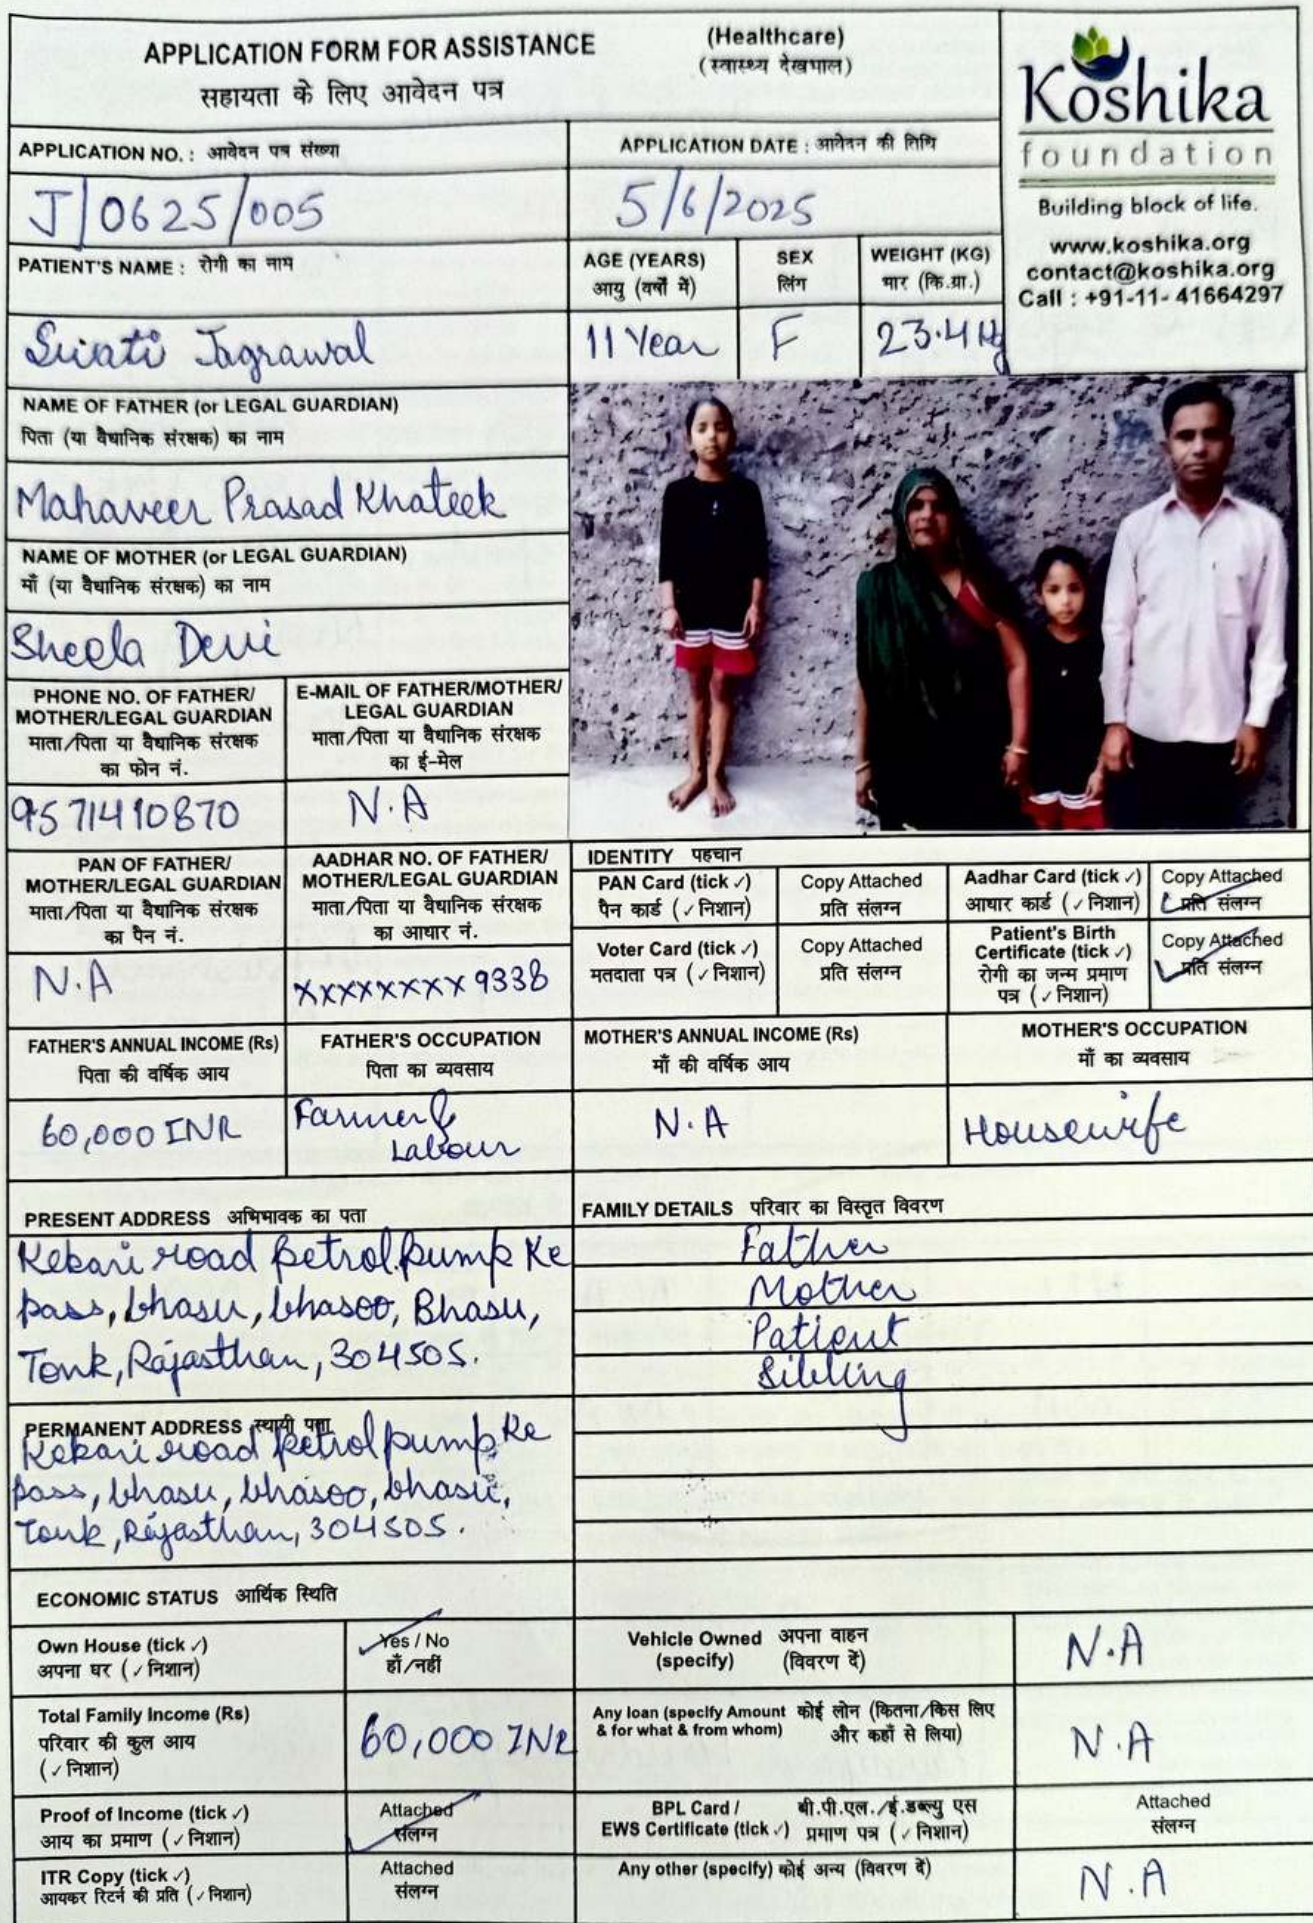 APPLICATION FORM FOR ASSISTANCE
सहायता के लिए आवेदन पत्र
(Healthcare)
(स्वास्थ्य देखभाल)
Koshika
foundation
Building block of life.
www.koshika.org
contact@koshika.org
Call : +91-11- 41664297
APPLICATION NO. : आवेदन पत्र संख्या
APPLICATION DATE : आवेदन की तिथि
J/0625/005
5/6/2025
PATIENT'S NAME : रोगी का नाम
AGE (YEARS)
आयु (वर्षों में)
SEX
लिंग
WEIGHT (KG)
भार (कि.ग्रा.)
Swati Jagrawal
11 Year
F
23.4 Kg
NAME OF FATHER (or LEGAL GUARDIAN)
पिता (या वैधानिक संरक्षक) का नाम
Mahaveer Prasad Khateek
NAME OF MOTHER (or LEGAL GUARDIAN)
माँ (या वैधानिक संरक्षक) का नाम
Sheela Devi
PHONE NO. OF FATHER/
MOTHER/LEGAL GUARDIAN
माता/पिता या वैधानिक संरक्षक
का फोन नं.
E-MAIL OF FATHER/MOTHER/
LEGAL GUARDIAN
माता/पिता या वैधानिक संरक्षक
का ई-मेल
9571410870
N.A
PAN OF FATHER/
MOTHER/LEGAL GUARDIAN
माता/पिता या वैधानिक संरक्षक
का पैन नं.
AADHAR NO. OF FATHER/
MOTHER/LEGAL GUARDIAN
माता/पिता या वैधानिक संरक्षक
का आधार नं.
N.A
xxxxxxxx9338
IDENTITY पहचान
PAN Card (tick ✓)
पैन कार्ड (✓निशान)
Copy Attached
प्रति संलग्न
Aadhar Card (tick ✓)
आधार कार्ड (✓निशान)
Copy Attached
प्रति संलग्न
Voter Card (tick ✓)
मतदाता पत्र (✓निशान)
Copy Attached
प्रति संलग्न
Patient's Birth
Certificate (tick ✓)
रोगी का जन्म प्रमाण
पत्र (✓निशान)
Copy Attached
प्रति संलग्न
FATHER'S ANNUAL INCOME (Rs)
पिता की वार्षिक आय
FATHER'S OCCUPATION
पिता का व्यवसाय
MOTHER'S ANNUAL INCOME (Rs)
माँ की वार्षिक आय
MOTHER'S OCCUPATION
माँ का व्यवसाय
60,000 INR
Farmer &
Labour
N.A
Housewife
PRESENT ADDRESS अभिभावक का पता
Kekari road petrol pump Ke
pass, bhasu, bhasoo, Bhasu,
Tonk, Rajasthan, 304505.
FAMILY DETAILS परिवार का विस्तृत विवरण
Father
Mother
Patient
Sibling
PERMANENT ADDRESS स्थायी पता
Kekari road petrol pump Ke
pass, bhasu, bhasoo, bhasu,
Tonk, Rajasthan, 304505.
ECONOMIC STATUS आर्थिक स्थिति
Own House (tick ✓)
अपना घर (✓निशान)
Yes / No
हाँ/नहीं
Vehicle Owned अपना वाहन
(specify) (विवरण दें)
N.A
Total Family Income (Rs)
परिवार की कुल आय
(✓निशान)
60,000 INR
Any loan (specify Amount कोई लोन (कितना/किस लिए
& for what & from whom) और कहाँ से लिया)
N.A
Proof of Income (tick ✓)
आय का प्रमाण (✓निशान)
Attached
संलग्न
BPL Card / बी.पी.एल./ई.डब्ल्यु एस
EWS Certificate (tick ✓) प्रमाण पत्र (✓निशान)
Attached
संलग्न
ITR Copy (tick ✓)
आयकर रिटर्न की प्रति (✓निशान)
Attached
संलग्न
Any other (specify) कोई अन्य (विवरण दें)
N.A